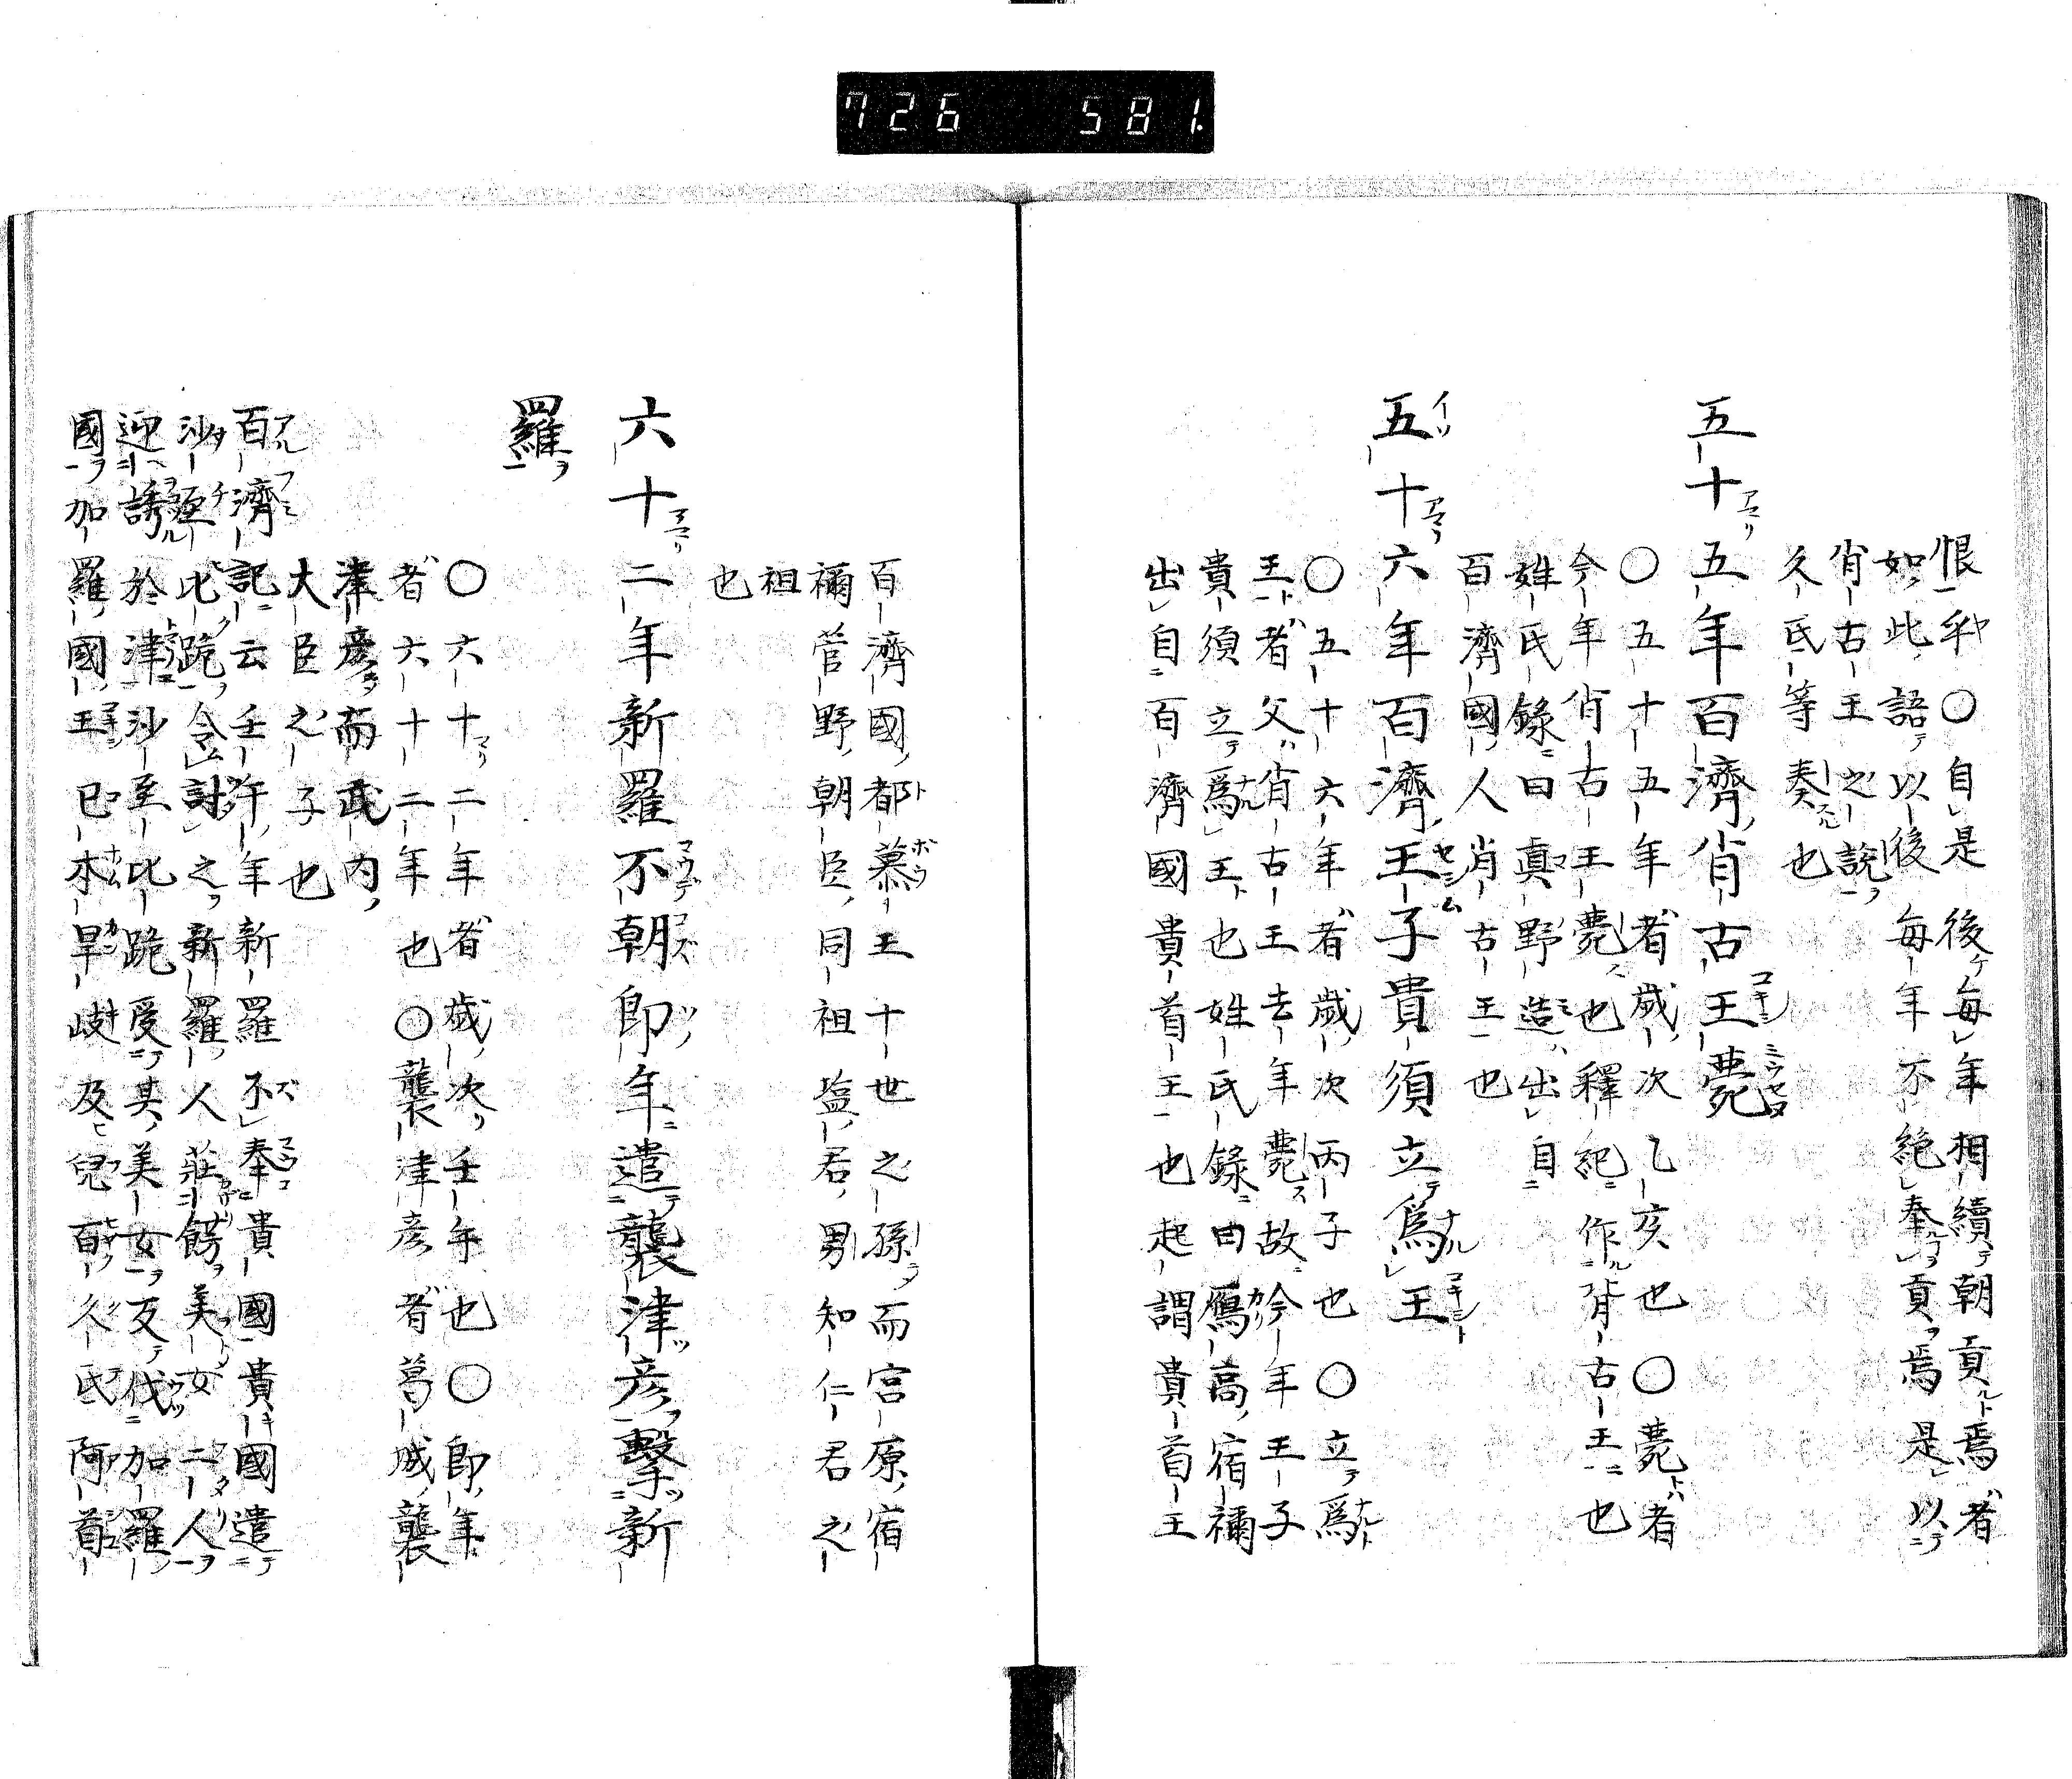 726 581
恨乎〇自是後每年相續朝貢焉者
如此語以後每年不絶奉貢焉是以
肖古王之說
久氐等奏也
五十五年百濟肖古王薨
〇五十五年者歲次乙亥也〇薨者
今年肖古王薨也釋紀作背古王也
姓氏錄曰眞野造出自
百濟國人肖古王也
五十六年百濟王子貴須立爲王
〇五十六年者歲次丙子也〇立爲
王者父肖古王去年薨故今年王子
貴須立爲王也姓氏錄曰鴈高宿禰
出自百濟國貴首王也起謂貴首王
百濟國都慕王十世之孫而宮原宿
禰菅野朝臣同祖塩君男知仁君之
祖
也
六十二年新羅不朝即年遣襲津彦擊新
羅
〇六十二年者歲次壬午也〇即年
者六十二年也〇襲津彦者葛城襲
津彦而武內
大臣之子也
百濟記云壬午年新羅不奉貴國貴國遣
沙至比跪令討之新羅人莊餝美女二人
迎誘於津沙至比跪受其美女反伐加羅
國加羅國王己本旱岐及兒百久氐阿首